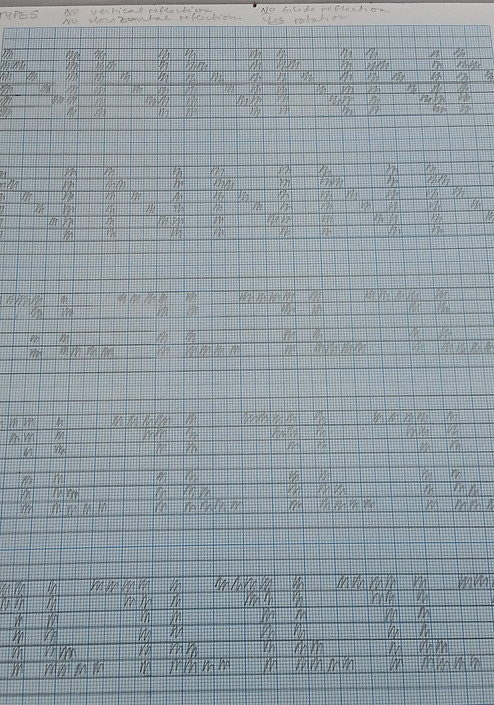 TYPES NO vertical reflection NO Glide reflection
NO horizontal reflection YES rotation